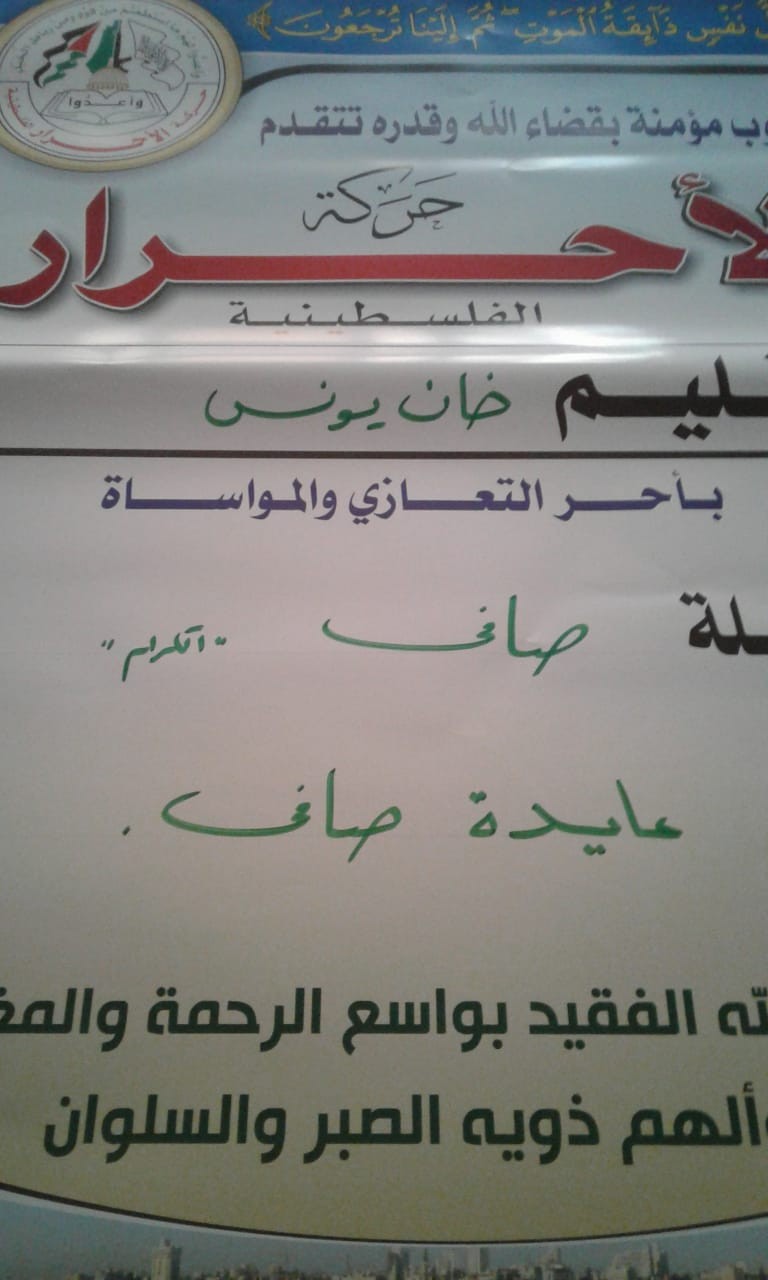 نَفْسٍ ذَآئِقَةُ الْمَوْتِ ثُمَّ إِلَيْنَا تُرْجَعُونَ
وأعدوا
حركة الأحرار الفلسطينية
وب مؤمنة بقضاء الله وقدره تتقدم
حركة
لأحرار
الفلسطينية
ليم خان يونس
بأحر التعازي والمواساة
لة صافي "الكرام"
عايدة صافي .
لله الفقيد بواسع الرحمة والمغ
وألهم ذويه الصبر والسلوان